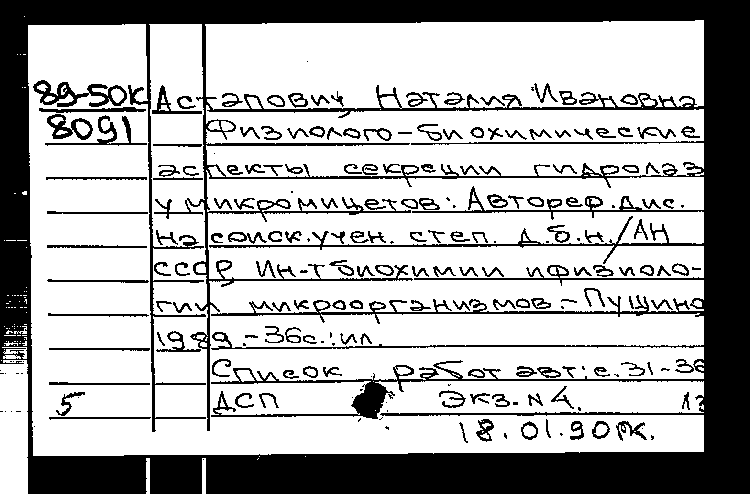 89-50К Астапович Наталия Ивановна
8091 Физиолого-биохимические
аспекты секреции гидролаз
у микромицетов: Автореф.дис.
на соиск.учен. степ. д.б.н./АН
СССР, Ин-т биохимии и физиоло-
гии микроорганизмов.- Пущино
1989.-36с.:ил.
Список работ авт:с.31-36
5 ДСП Экз.N4. 13
18.01.90